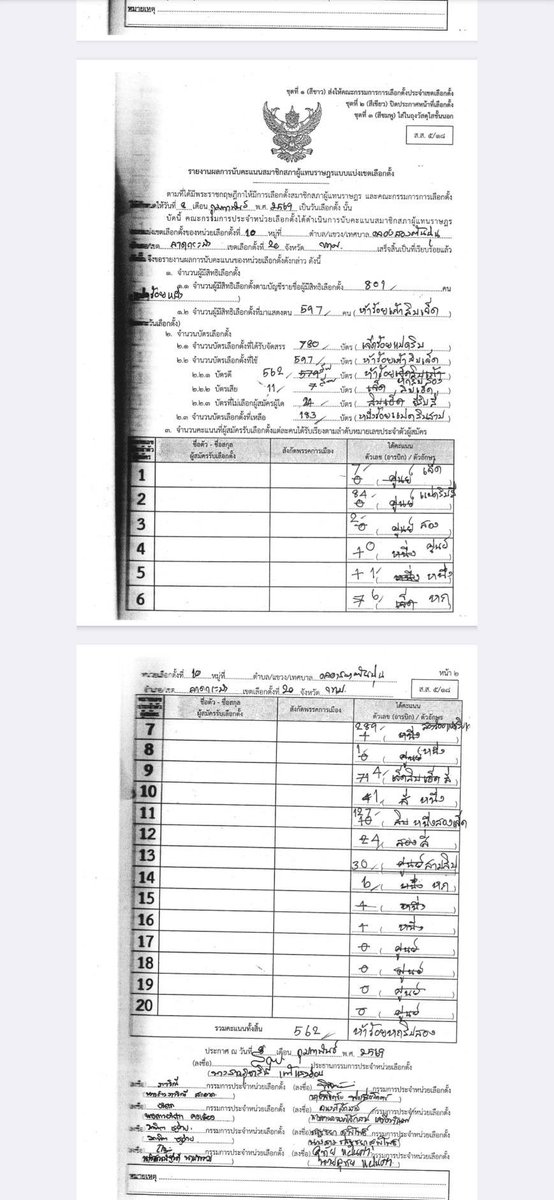 หมายเหตุ
ชุดที่ ๑ (สีขาว) ส่งให้คณะกรรมการการเลือกตั้งประจำเขตเลือกตั้ง
ชุดที่ ๒ (สีเขียว) ปิดประกาศหน้าที่เลือกตั้ง
ชุดที่ ๓ (สีชมพู) ใส่ในถุงวัสดุใสชั้นนอก
ส.ส. ๕/๑๘
รายงานผลการนับคะแนนสมาชิกสภาผู้แทนราษฎรแบบแบ่งเขตเลือกตั้ง
ตามที่ได้มีพระราชกฤษฎีกาให้มีการเลือกตั้งสมาชิกสภาผู้แทนราษฎร และคณะกรรมการการเลือกตั้ง
ให้วันที่ 8 เดือน กุมภาพันธ์ พ.ศ. 2569 เป็นวันเลือกตั้ง นั้น
บัดนี้ คณะกรรมการประจำหน่วยเลือกตั้งได้ดำเนินการนับคะแนนสมาชิกสภาผู้แทนราษฎร
เขตเลือกตั้งของหน่วยเลือกตั้งที่ 10 หมู่ที่ ตำบล/แขวง/เทศบาล คลองสองต้นนุ่น
ลาดกระบัง เขตเลือกตั้งที่ 20 จังหวัด กทม. เสร็จสิ้นเป็นที่เรียบร้อยแล้ว
จึงขอรายงานผลการนับคะแนนของหน่วยเลือกตั้งดังกล่าว ดังนี้
๑. จำนวนผู้มีสิทธิเลือกตั้ง
๑.๑ จำนวนผู้มีสิทธิเลือกตั้งตามบัญชีรายชื่อผู้มีสิทธิเลือกตั้ง 801 คน
ร้อยหนึ่ง )
๑.๒ จำนวนผู้มีสิทธิเลือกตั้งที่มาแสดงตน 597 คน ( ห้าร้อยเก้าสิบเจ็ด )
วันเลือกตั้ง)
๒. จำนวนบัตรเลือกตั้ง
๒.๑ จำนวนบัตรเลือกตั้งที่ได้รับจัดสรร 780 บัตร ( เจ็ดร้อยแปดสิบ )
๒.๒ จำนวนบัตรเลือกตั้งที่ใช้ 597 บัตร ( ห้าร้อยเก้าสิบเจ็ด )
๒.๒.๑ บัตรดี 562 579 บัตร ( ห้าร้อยเจ็ดสิบเก้า หกสิบสอง )
๒.๒.๒ บัตรเสีย 11 7 บัตร ( เจ็ด สิบเอ็ด )
๒.๒.๓ บัตรที่ไม่เลือกผู้สมัครผู้ใด 24 บัตร ( สิบเอ็ด )
๒.๓ จำนวนบัตรเลือกตั้งที่เหลือ 183 บัตร ( หนึ่งร้อยแปดสิบสาม )
๓. จำนวนคะแนนที่ผู้สมัครรับเลือกตั้งแต่ละคนได้รับเรียงตามลำดับหมายเลขประจำตัวผู้สมัคร
ชื่อตัว - ชื่อสกุล ผู้สมัครรับเลือกตั้ง สังกัดพรรคการเมือง ได้คะแนน ตัวเลข (อารบิก) / ตัวอักษร
1 7 0 ( ศูนย์ เจ็ด )
2 84 0 ( ศูนย์ แปดสิบสี่ )
3 2 0 ( ศูนย์ สอง )
4 1 0 ( หนึ่ง ศูนย์ )
5 1 1 ( หนึ่ง หนึ่ง )
6 7 6 ( เจ็ด หก )
หน่วยเลือกตั้งที่ 10 หมู่ที่ ตำบล/แขวง/เทศบาล คลองสองต้นนุ่น หน้า ๒
อำเภอ/เขต ลาดกระบัง เขตเลือกตั้งที่ 20 จังหวัด กทม. ส.ส. ๕/๑๘
ชื่อตัว - ชื่อสกุล ผู้สมัครรับเลือกตั้ง สังกัดพรรคการเมือง ได้คะแนน ตัวเลข (อารบิก) / ตัวอักษร
7 289 1 ( หนึ่ง
8 1 0 ( ศูนย์ หนึ่ง )
9 71 4 ( เจ็ดสิบเอ็ด สี่
10 41 ( สี่ หนึ่ง )
11 127 10 ( สิบ หนึ่งสองเจ็ด
12 24 ( สองสี่ )
13 30 ( ศูนย์ สามสิบ
14 6 ( หนึ่ง หก )
15 1 ( หนึ่ง )
16 1 ( หนึ่ง )
17 0 ( ศูนย์ )
18 0 ( ศูนย์ )
19 0 ( ศูนย์ )
20 0 ( ศูนย์ )
รวมคะแนนทั้งสิ้น 562 ห้าร้อยหกสิบสอง
ประกาศ ณ วันที่ 8 เดือน กุมภาพันธ์ พ.ศ. 2569
(ลงชื่อ) ประธานกรรมการประจำหน่วยเลือกตั้ง
(ลงชื่อ) กรรมการประจำหน่วยเลือกตั้ง (ลงชื่อ) กรรมการประจำหน่วยเลือกตั้ง
(ลงชื่อ) กรรมการประจำหน่วยเลือกตั้ง (ลงชื่อ) กรรมการประจำหน่วยเลือกตั้ง
(ลงชื่อ) กรรมการประจำหน่วยเลือกตั้ง (ลงชื่อ) กรรมการประจำหน่วยเลือกตั้ง
(ลงชื่อ) กรรมการประจำหน่วยเลือกตั้ง (ลงชื่อ) กรรมการประจำหน่วยเลือกตั้ง
หมายเหตุ